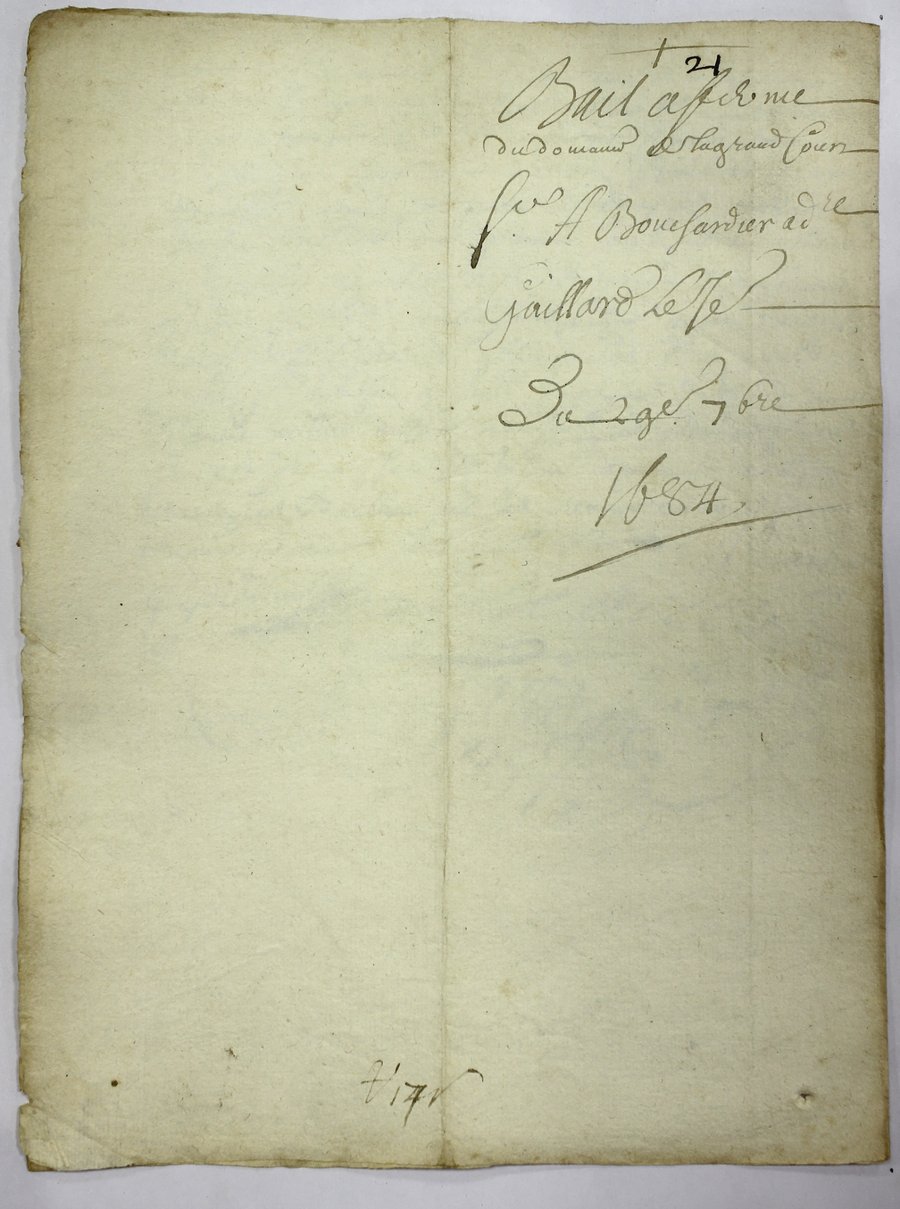 21
Bail afferme
du domaine de lagrand Cour
A Bouchardier ad re
Gaillard
Du 29e 7bre
1684